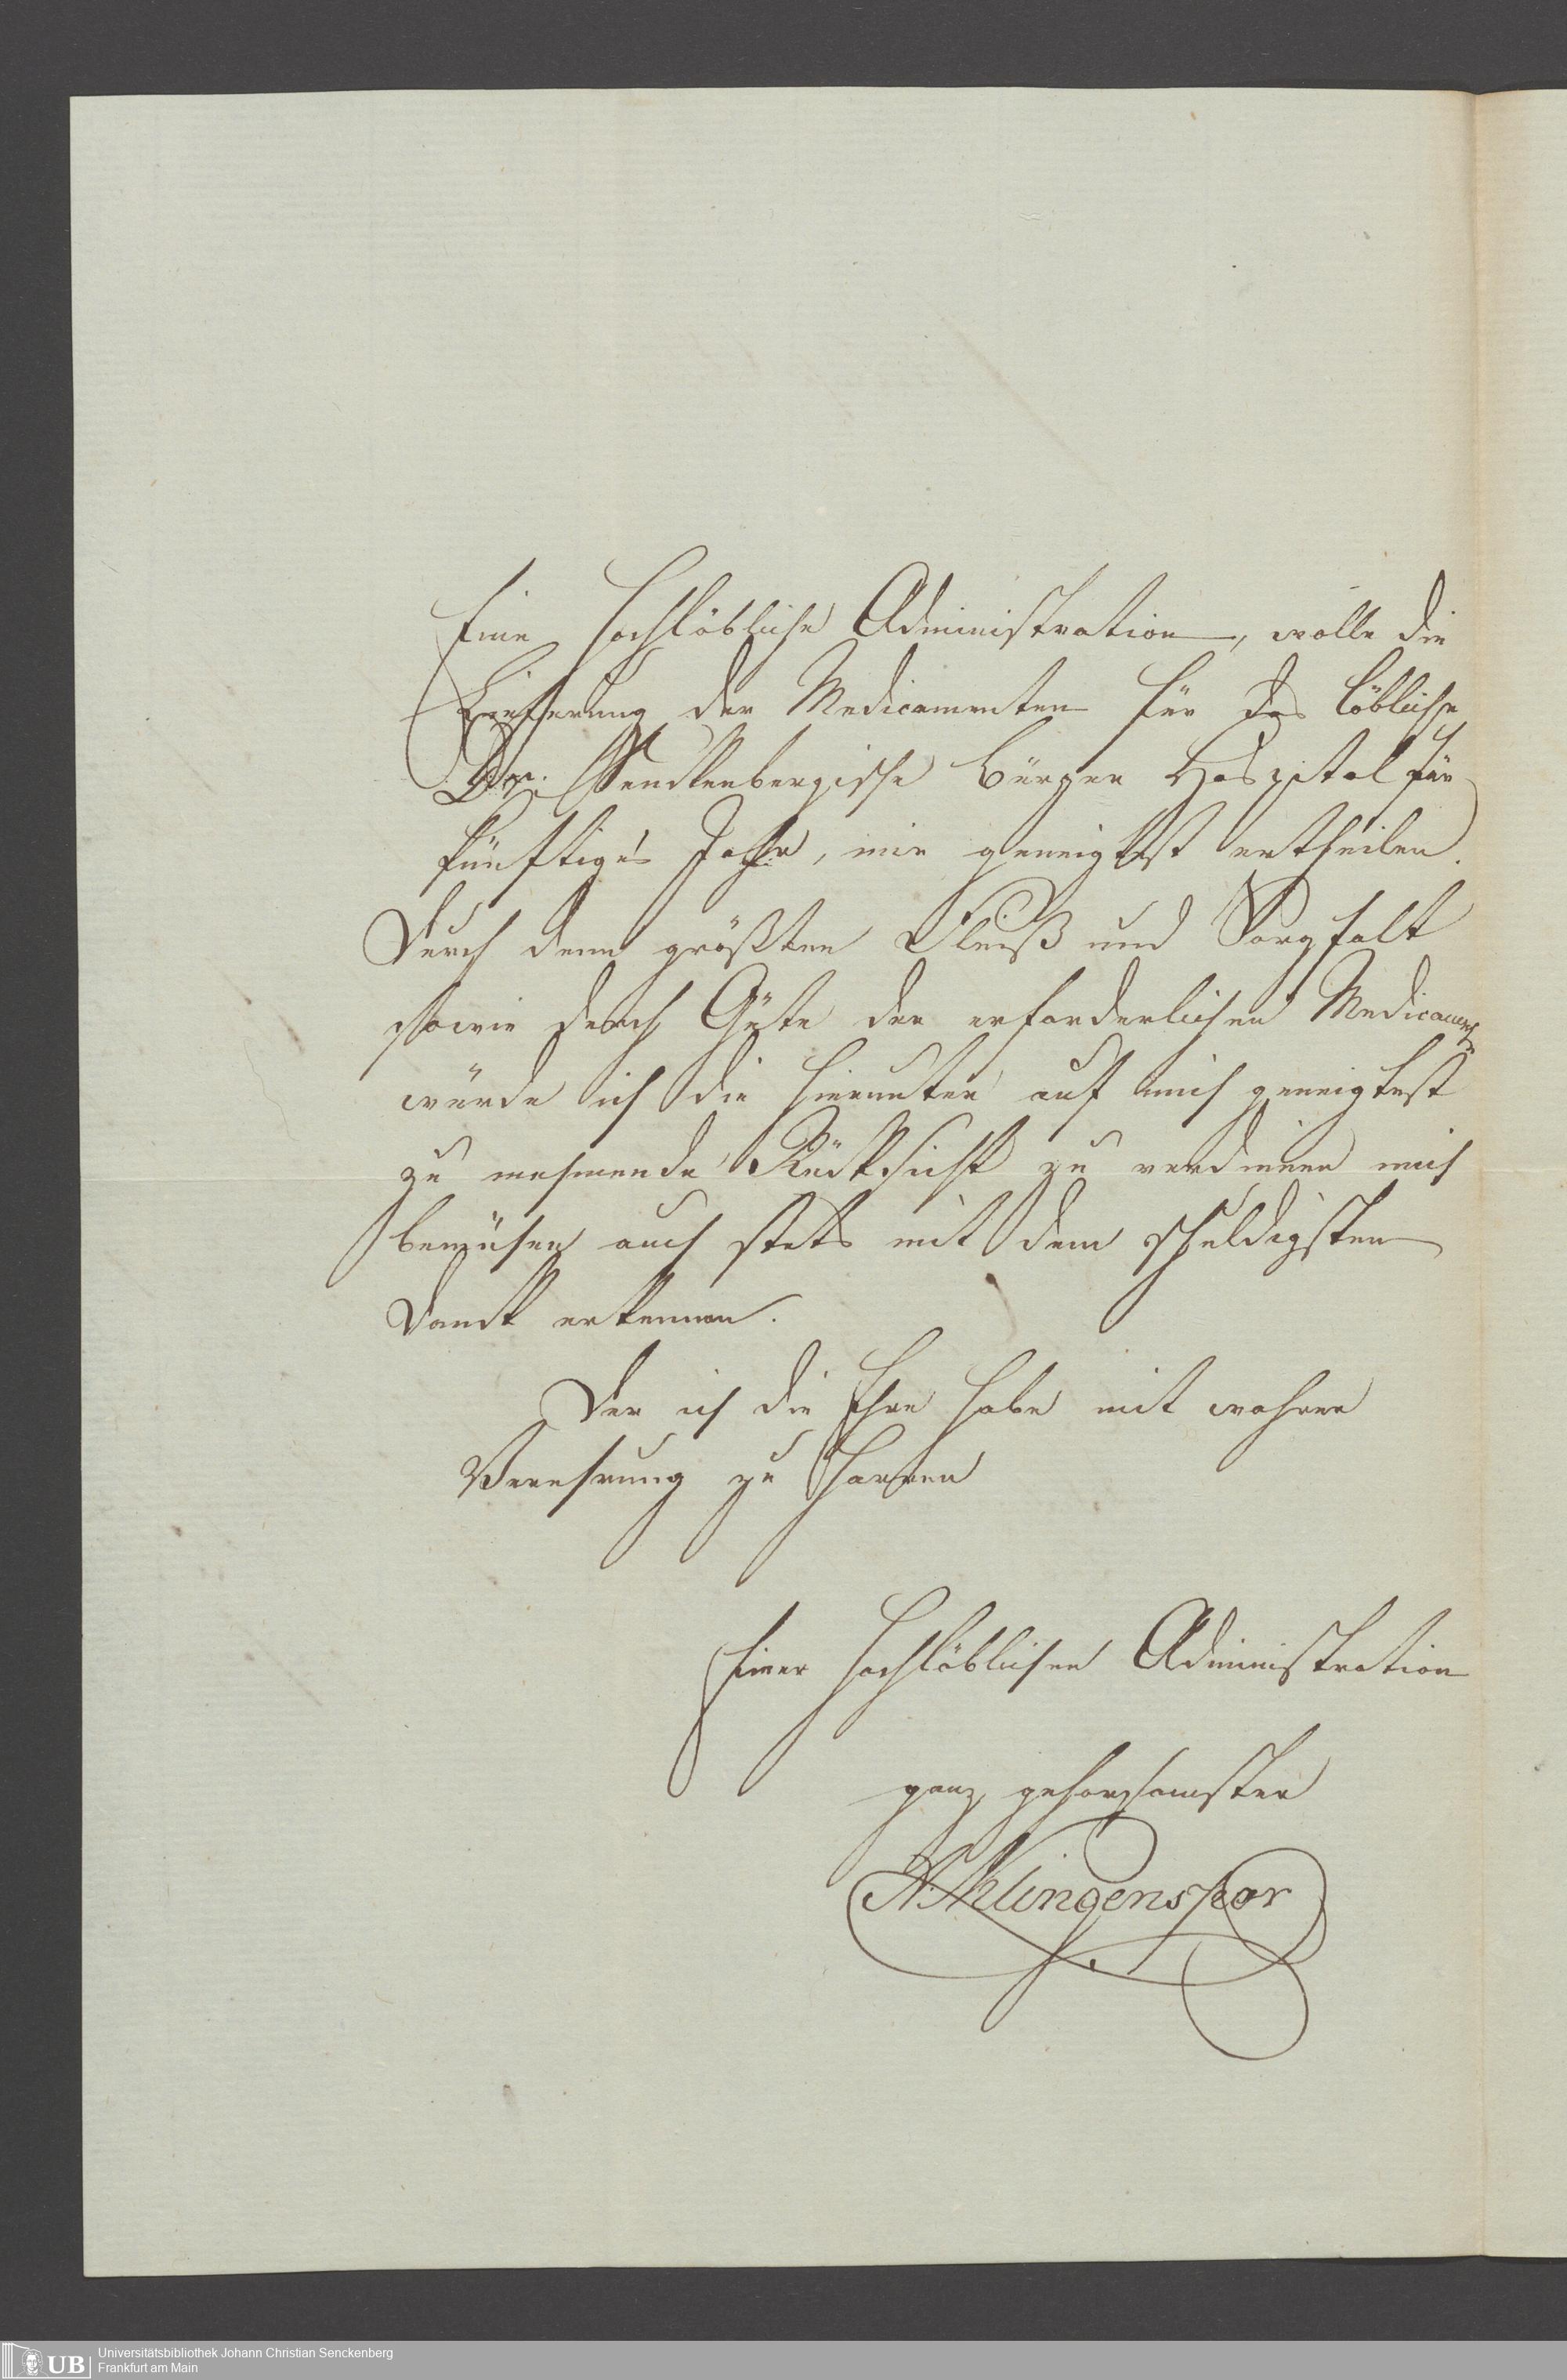 Eine Hochlöbliche Administration, wolle die
Lieferung der Medicamenten für das löbliche
Dr. Senckenbergische Bürger Hospital für
künftiges Jahr, mir geneigtest ertheilen.
Durch denn größten Fleiß und Sorgfalt
sowie durch Güte der erforderlichen Medicamente
würde ich die hierunter auf mich geneigtest
zu nehmende Rücksicht zu verdienen mich
bemühen auch stets mit dem schuldigsten
Danck erkennen.
Der ich die Ehre habe mit wahrer
Verehrung zu harren
Einer Hochlöblichen Administration
ganz gehorsamster
A. Klingenspor
UB
Universitätsbibliothek Johann Christian Senckenberg
Frankfurt am Main